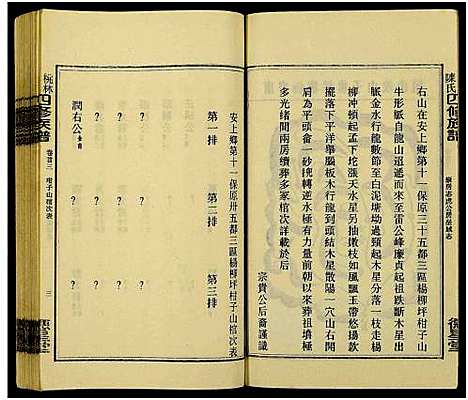 陳氏四修族譜
右山在安上鄉第十一保原三十五都三區楊柳坪柑子山
牛形脈自龍山迢遞而來至雷公峰廉貞起祖跌斷木星出
脈金水行龍數節至白泥塘坳過頸起木星分落一枝走楊
柳沖頓起孟下坨漲天水星另抽嫩枝如風飄玉帶悠揚款
擺落下平洋舉脈板木行龍到頭結木星散陽一穴山右開
肩為平頭會一砂挽轉逆水極有力量前朝以來葬祖塡極
多光緒間兩房續葬多冢棺次詳載於后
宗貴公后裔謹識
安上鄉第十一保原卅五都三區楊柳坪柑子山棺次表
第一排
第二排
第三排
?
?
?
?
?
?
?
?
?
?
?
?
潤右公
桅林四修族譜
卷首三
柑子山棺次表
三